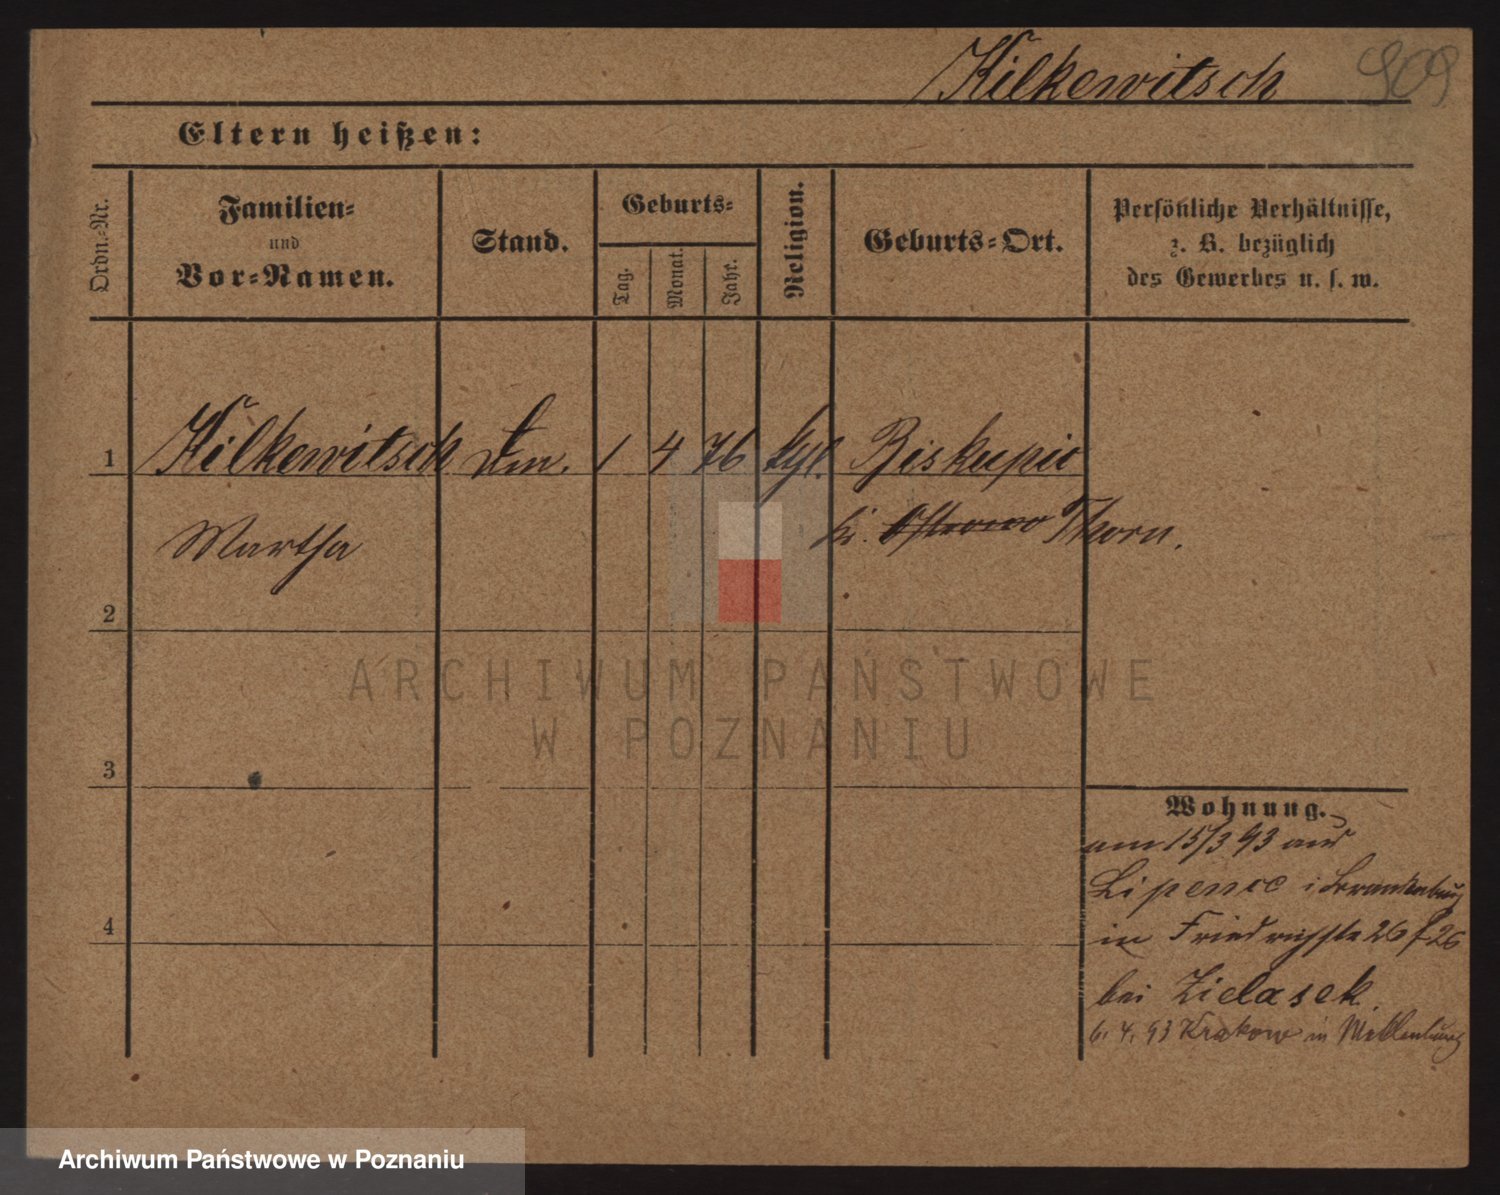 Kilkewitsch 909
Eltern heißen:
Ordn.-Nr.
Familien-
und
Vor-Namen.
Stand.
Geburts-
Tag.
Monat.
Jahr.
Religion.
Geburts-Ort.
Persönliche Verhältnisse,
z. B. bezüglich
des Gewerbes u. s. w.
1 Kilkewitsch 1 4 76 Biskupic
Martha Kr. Ostrowo Thorn.
2
3
4
Wohnung.
am 15/3 93 aus
Lipence i Brandenburg
in Friedrichstr 26
bei Zielasek
6. 4. 93 Krakow in Mecklenburg
ARCHIWUM PAŃSTWOWE
W POZNANIU
Archiwum Państwowe w Poznaniu